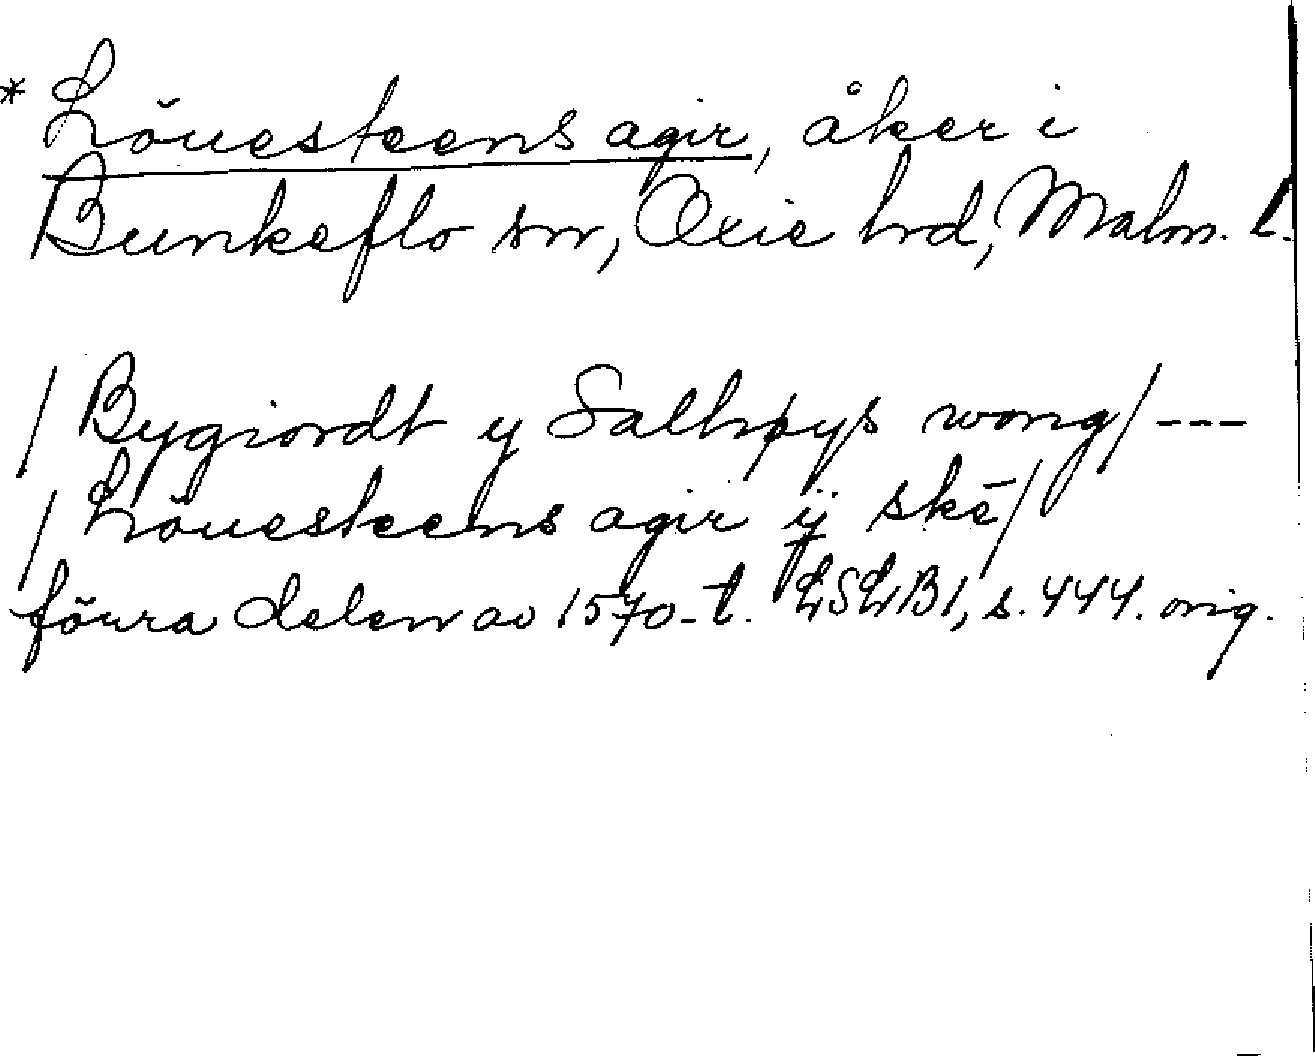 * Löuesteens agir, åker i
Bunkeflo sn, Oxie hd, Malm. l.
/ Bygiordt y Salhøys wong/ ---
/ Löuesteens agir ÿ skē/
förra delen av 1570-t. LSLB1, s. 444. orig.